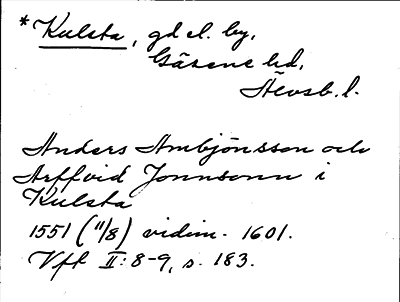 *Kulsta, gd el. by,
Gäsene hd,
Älvsb. l.
Anders Ambjönsson och
Arffvid Jonnsonn i
Kulsta
1551 (11/8) vidim. 1601.
Vft II:8-9, s. 183.